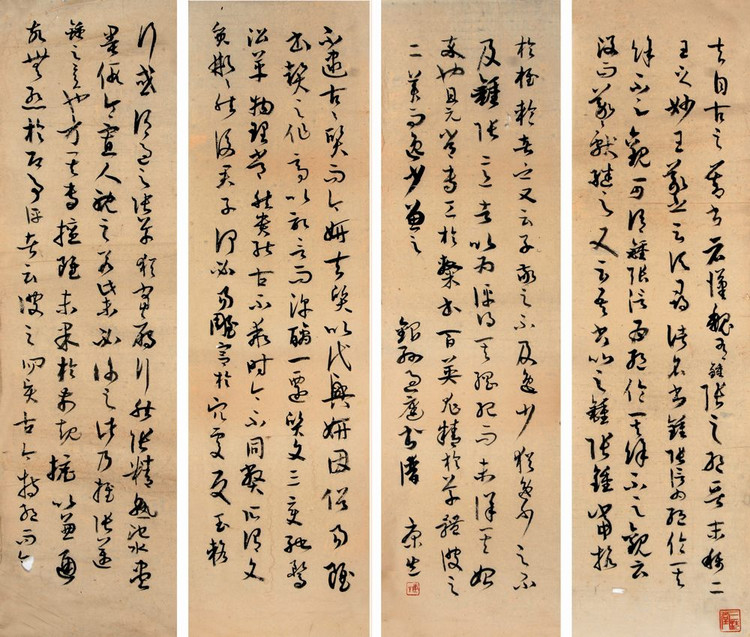 夫自古之善書者漢魏有鍾張之絕晉末稱二
王之妙王羲之云頃尋諸名書鍾張信為絕倫其
餘不足觀可謂鍾張信為絕倫其餘不足觀云
沒而羲獻繼之又云吾書比之鍾張鍾當抗
行或謂過之張草猶當雁行然張精熟池水盡
墨假令寡人耽之若此未必謝之此乃推張邁
鍾之意也考其專擅雖未果於前規摭以兼通
故無慚於即事評者云彼之四賢古今特絕而今
不逮古古質而今妍夫質以代興妍因俗易雖
書契之作適以記言而淳醨一遷質文三變馳騖
沿革物理常然貴能古不乖時今不同弊所謂文
質彬彬然後君子何必易雕宮於穴處反玉輅
於椎輪者乎又云子敬之不及逸少猶逸少之不
及鍾張意者以為評得其綱紀而未詳其始
卒也且元常專工於隸書百英尤精於草體彼之
二美而逸少兼之
錄孫過庭書譜 康生